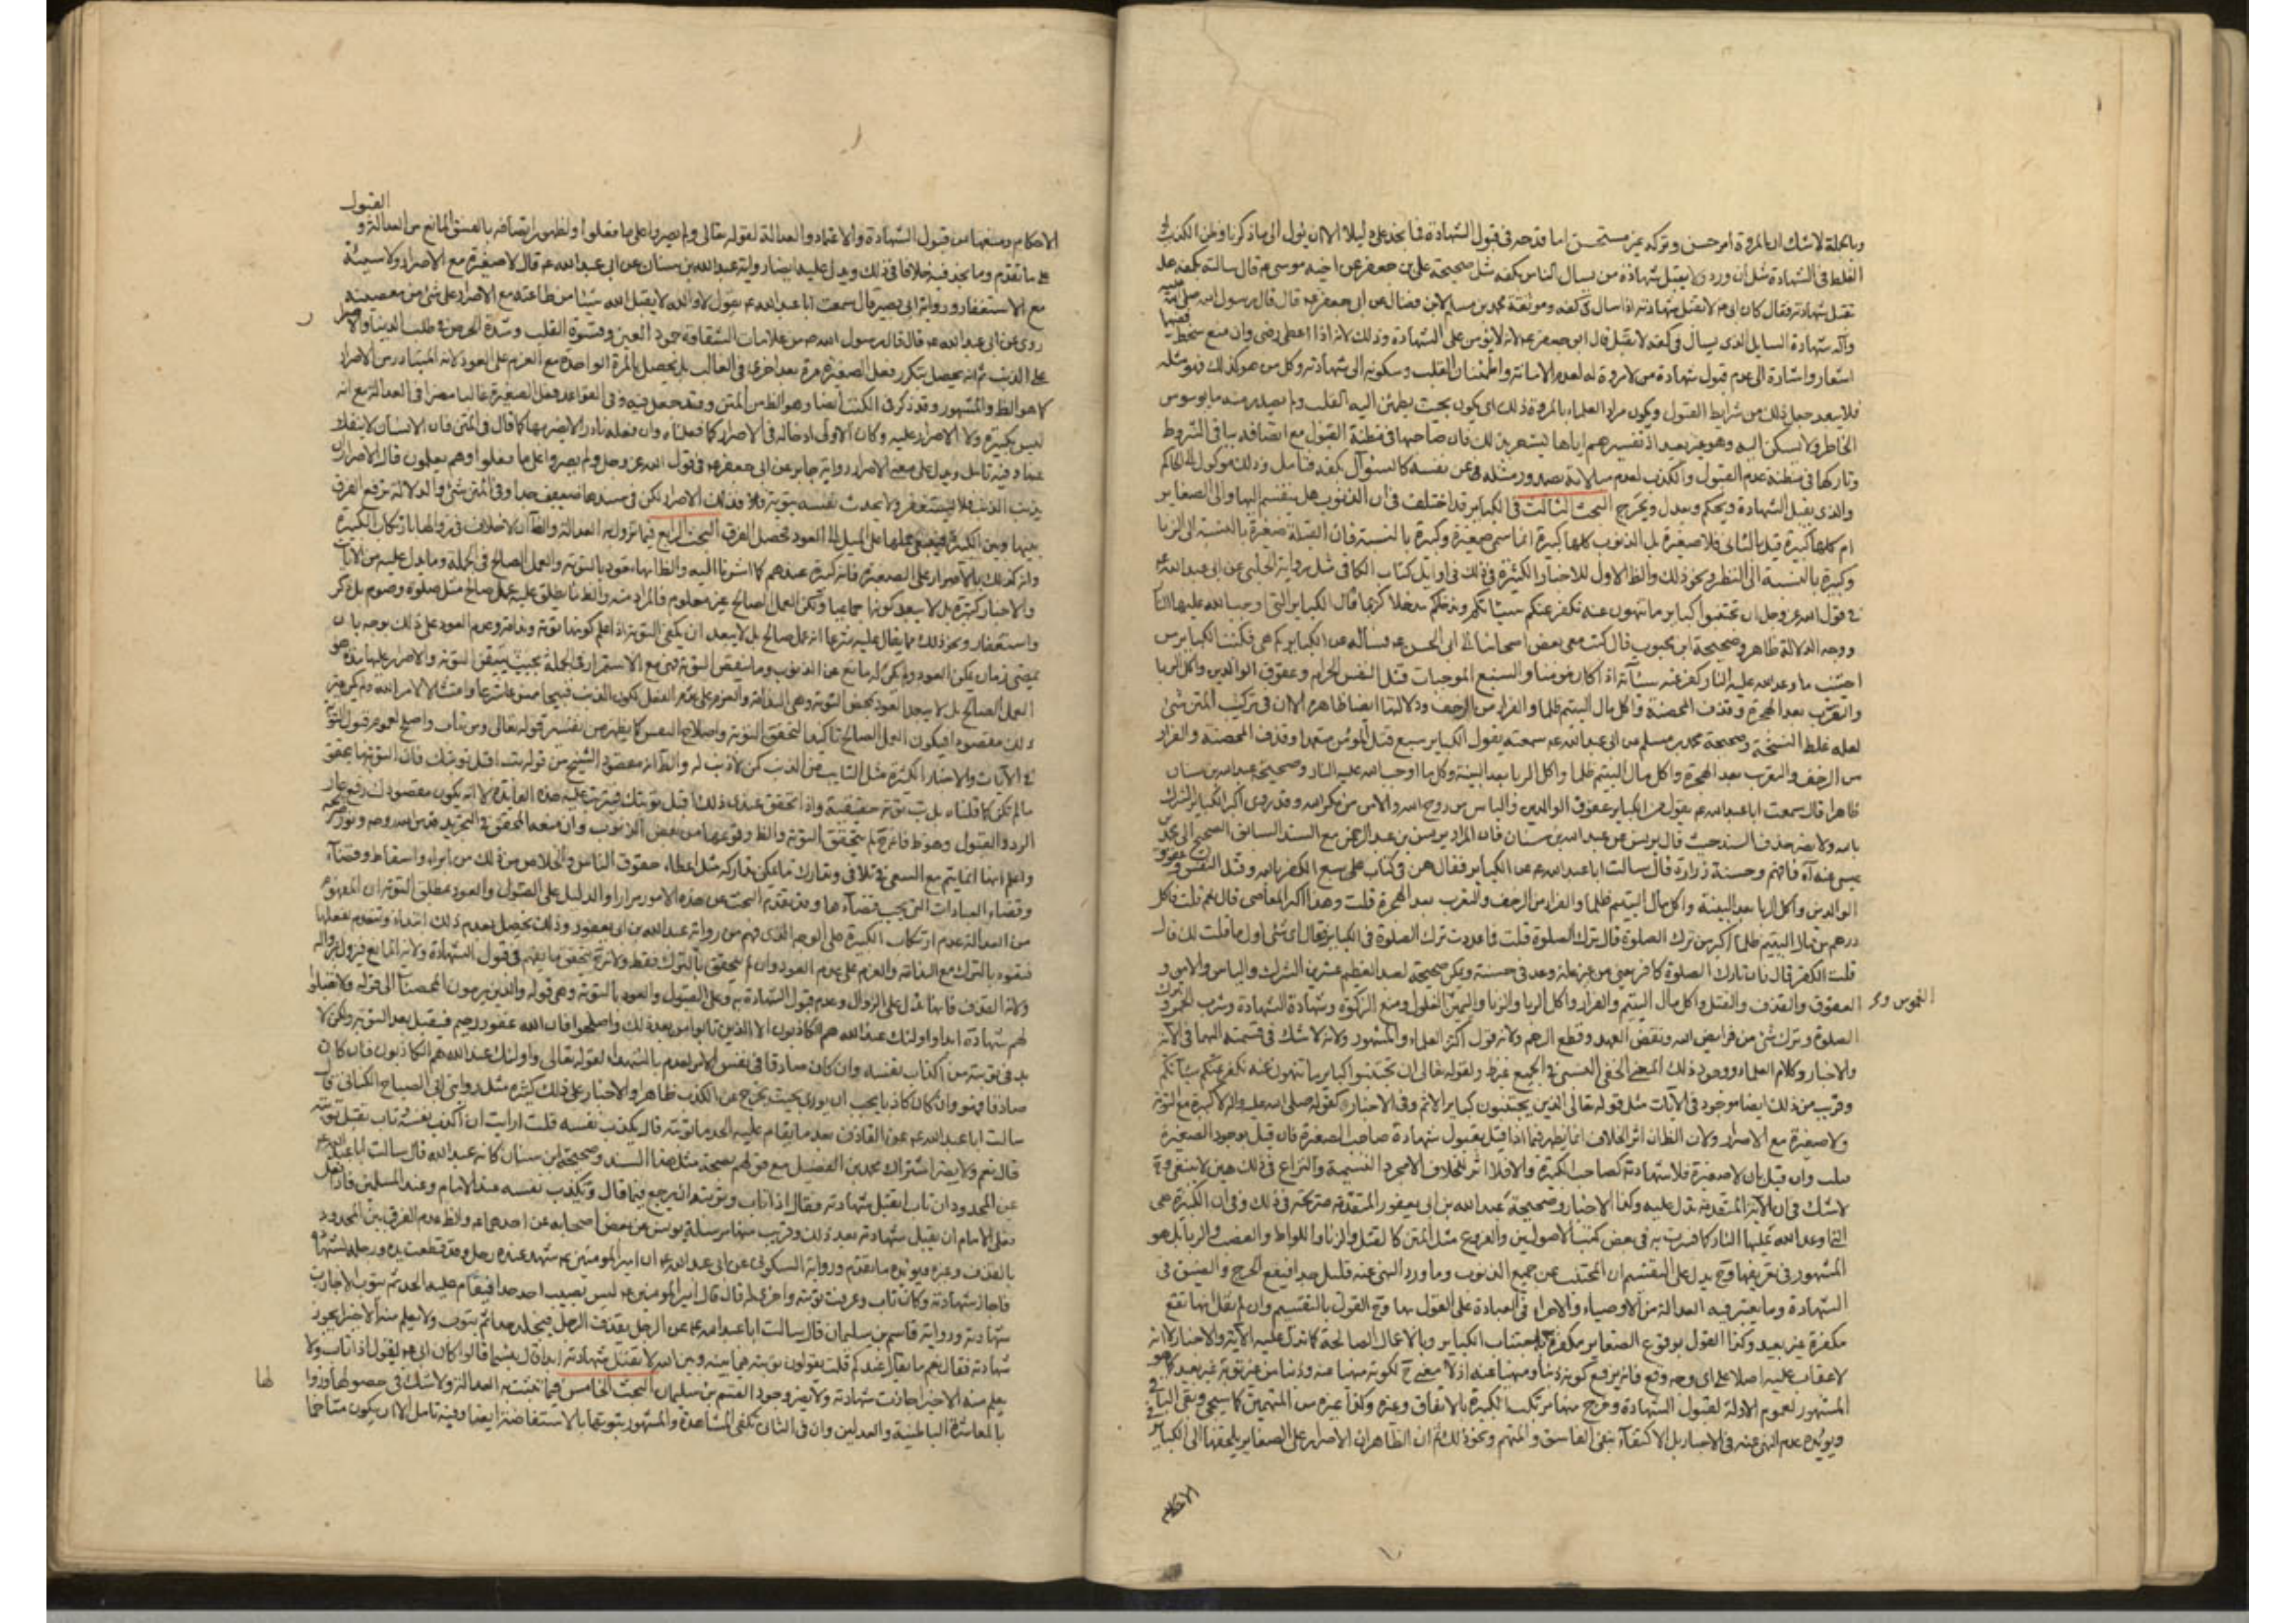 وبالجملة لا شك ان المروة أمر حسن وتركه غير مستحسن اما قدحه فى قبول الشهادة فما نجد عليه دليلا الا ان يؤل الى ما ذكرنا وظن الكذب
الغلط فى الشهادة مثل أن ورد لا يقبل شهادة من يسأل الناس بكفه مثل صحيحة على بن جعفر عن اخيه موسى ع قال سالته
تقبل شهادته فقال كان ابى ع لا تقبل شهادته اذا سال فى كفه وموثقة محمد بن مسلم لابن فضال عن ابى جعفر ع قال قال رسول الله صلى الله عليه
وآله شهادة السايل الذى يسأل فى كفه لا تقبل قال ابو جعفر ع لانه لا يؤمن على الشهادة وذلك لانه اذا اعطى رضى وان منع سخط
اشعار واشارة الى عدم قبول شهادة من لا مروة له لعدم الامانة واطمئنان القلب وسكونه الى شهادته وكل من هو كذلك فهو مثله
فلا يبعد جعل ذلك من شرايط القبول ويكون مراد العلماء بالمروة ذلك اى يكون بحيث يطمئن اليه القلب ولم يصدر منه ما يوسوس
الخاطر ولا تسكن اليه وهو غير بعيد اذ تفسيرهم اياها يشعر بذلك فان صاحبها فى مظنة القبول مع اتصافه بباقى الشروط
وتاركها فى مظنة عدم القبول والكذب لعدم مبالاته بصدور مثله عن نفسه كالسئوال بكفه فتامل وذلك موكول الى الحاكم
والذى يقبل الشهادة ويحكم ويعدل ويخرج البحث الثالث فى الكبائر قد اختلف فى ان الذنوب هل ينقسم اليها والى الصغاير
ام كلها كبيرة قيل بالثانى فلا صغيرة بل الذنوب كلها كبيرة انما سمى صغيرة وكبيرة بالنسبة فان القبلة صغيرة بالنسبة الى الزنا
وكبيرة بالنسبة الى النظر ونحو ذلك والظ الاول للاخبار الكثيرة فى ذلك فى اوايل كتاب الكافى مثل رواية الحلبى عن ابى عبد الله ع
فى قول الله عز وجل ان تجتنبوا كباير ما تنهون عنه نكفر عنكم سيئاتكم وندخلكم مدخلا كريما قال الكباير التى اوجب الله عليها النار
ووجه الدلالة ظاهر وصحيحة ابن محبوب قال كتب معى بعض اصحابنا الى ابى الحسن ع فسأله عن الكباير كم هى فكتب الكباير من
اجتنب ما وعد الله عليه النار كفر عنه سيئاته اذا كان مؤمنا والسبع الموجبات قتل النفس الحرام وعقوق الوالدين واكل الربا
والتعرب بعد الهجرة وقذف المحصنة واكل مال اليتيم ظلما والفرار من الزحف ودلالتها ايضا ظاهرة الا ان فى تركيب المتن شئ
لعله غلط النسخة وصحيحة محمد بن مسلم عن ابى عبد الله ع سمعته يقول الكباير سبع قتل المؤمن متعمدا وقذف المحصنة والفرار
من الزحف والتعرب بعد الهجرة واكل مال اليتيم ظلما واكل الربا بعد البينة وكل ما اوجب الله عليه النار وصحيحة عبد الله بن سنان
ظاهرا قال سمعت ابا عبد الله ع يقول من الكباير عقوق الوالدين والياس من روح الله والامن من مكر الله وقد روى اكبر الكباير الشرك
بالله ولا يضر حذف السند حيث قال يونس عن عبد الله بن سنان فان المراد يونس بن عبد الرحمن مع السند السابق الصحيح الى محمد بن
عيسى عنه فافهم وحسنة زرارة قال سالت ابا عبد الله ع عن الكباير فقال هن فى كتاب على سبع الكفر بالله وقتل النفس وعقوق
الوالدين واكل الربا بعد البينة واكل مال اليتيم ظلما والفرار من الزحف والتعرب بعد الهجرة قلت وهذا اكبر المعاصى قال نعم قلت فاكل
درهم من مال اليتيم ظلما اكبر من ترك الصلوة قال ترك الصلوة قلت فما عددت ترك الصلوة فى الكباير فقال اى شئ اول ما قلت لك قال
قلت الكفر قال فان تارك الصلوة كافر يعنى من غير علة وعد فى حسنة ويكن صحيحة لعبد العظيم عشرين الشرك والياس والامن و
العقوق والقذف والقتل واكل مال اليتيم والفرار واكل الربا والزنا واليمين الغلول ومنع الزكوة وشهادة الشهادة وشرب الخمر وترك
الغموس و
الصلوة وترك شئ من فرايض الله ونقض العهد وقطع الرحم ولانه قول اكثر العلماء والمشهور ولانه لا شك فى قسمته اليهما فى الآية
والاخبار وكلام العلماء ووجود ذلك المعنى الحقى النسبى فى الجميع غير ظ ولقوله تعالى ان تجتنبوا كباير ما تنهون عنه نكفر عنكم سيئاتكم
وقريب من ذلك ايضا موجود فى الآيات مثل قوله تعالى الذين يجتنبون كباير الاثم وفى الاخبار كقوله صلى الله عليه واله لا كبيرة مع التوبة
ولا صغيرة مع الاصرار ولان الظ ان اثر الخلاف انما يظهر فيما اذا قيل بقبول شهادة صاحب الصغيرة فان قيل بوجود الصغيرة
قبلت وان قيل بان لا صغيرة فلا شهادته كصاحب الكبيرة والا فلا اثر للخلاف الا مجرد التسمية والنزاع فى ذلك هين لا ينبغى و ح
لا شك فى ان الآية المتقدمة تدل عليه وكذا الاخبار وصحيحة عبد الله بن ابى يعفور المتقدمة صريحة فى ذلك وفى ان الكبيرة هى
التى وعد الله عليها النار كما فسرت به فى بعض كتب الاصولين والفروع مثل المتن كالقتل والزنا واللواط والغصب والربا بل هو
المشهور فى تعريفها و ح يدل على التقسيم ان المجتنب عن جميع الذنوب وما ورد النهى عنه قليل جدا فيقع الحرج والضيق فى
الشهادة وما يعتبر فيه العدالة من الاوصياء والاجراء فى العبادة على القول بها و ح القول بالتقسيم وان لم يقل بها تقع
مكفرة غير بعيد وكذا القول بوقوع الصغاير مكفرة باجتناب الكباير وبالاعمال الصالحة كما تدل عليه الآية والاخبار لا انه
لا عقاب عليه اصلا على اى وجه وقع فانه يرفع كونه ذنبا ومنهيا عنه اذ لا معنى ح لكونه منهيا عنه وذنبا من غير توبة غير بعيد كما هو
المشهور لعموم الادلة لقبول الشهادة وخرج منها مرتكب الكبيرة بالاتفاق وغيره وكذا غيره من المتهمين كما سيجئ وبقى الباقى
ويؤيده عدم النهى عنه فى الاخبار بل الاكتفاء بنفى الفاسق والمتهم ونحو ذلك ثم ان الظاهر ان الاصرار على الصغاير يلحقها الى الكباير
الاحكام
القبول
الاحكام ومنعها من قبول الشهادة والاعتماد والعدالة لقوله تعالى ولم يصروا على ما فعلوا ولظهور اتصافه بالفسق المانع من العدالة و
على ما تقدم وما نجد فيه خلافا فى ذلك ويدل عليه ايضا رواية عبد الله بن سنان عن ابى عبد الله ع قال لا صغيرة مع الاصرار ولا سيئة
مع الاستغفار ورواية ابى بصير قال سمعت ابا عبد الله ع يقول لا والله لا يقبل الله شيئا من طاعته مع الاصرار على شئ من معصيته
روى عن ابى عبد الله ع قال قال رسول الله ص من علامات الشقاوة جمود العين وقسوة القلب وشدة الحرص فى طلب الدنيا والاصرار
على الذنب ثم انه يحصل بتكرر فعل الصغيرة مرة بعد اخرى فى الغالب بل يحصل بالمرة الواحدة مع العزم على العود لانه المتبادر من الاصرار
كما هو الظ والمشهور وقد ذكر فى الكتب ايضا وهو الظ من المتن وقد جعل فيه وفى القواعد فعل الصغيرة غالبا مضرا فى العدالة مع انه
ليس بكبيرة ولا الاصرار عليه وكان الاولى ادخاله فى الاصرار كما فعلناه وان فعله نادرا لا يضر بها كما قال فى المتن فان الانسان لا ينفك
عنها وفيه تامل ويدل على معنى الاصرار رواية جابر عن ابى جعفر ع فى قول الله عز وجل ولم يصروا على ما فعلوا وهم يعلمون قال الاصرار ان
يذنب الذنب فلا يستغفر ولا يحدث نفسه بتوبة فذلك الاصرار لكن فى سندها ضعيف جدا وفى المتن شئ والدلالة ترفع الفرق
بينها وبين الكبيرة فينبغى حملها على الميل الى العود فحصل الفرق البحث الرابع فيما تزول به العدالة والظ ان لا خلاف فى زوالها بارتكاب الكبيرة
وانه كذلك بالاصرار على الصغيرة فانه كبيرة عندهم كما اشرنا اليه والظ انها تعود بالتوبة والعمل الصالح فى الجملة وما يدل عليه من الآيات
والاخبار كثيرة بل لا يبعد كونها اجماعيا ولكن العمل الصالح غير معلوم فالمراد منه والظ ما يطلق عليه عمل صالح مثل صلوة وصوم بل ذكر
واستغفار ونحو ذلك مما يقال عليه شرعا انه عمل صالح بل لا يبعد ان يكفى التوبة اذا علم كونها توبة وندامة وعزم العود على ذلك بوجه بان
يمضى زمان يمكن العود ولم يكن له مانع عن الذنوب وما ينقض التوبة فهى مع الاستمرار فى الجملة بحيث يتيقن التوبة والاصرار عليها مدة هو
العمل الصالح بل لا يبعد العود بمحض التوبة وهى الندامة والعزم على عدم الفعل لكون الذنب قبيحا ممنوعا شرعا وامتثالا لامر الله ولم يكن غير
ذلك مقصوده فيكون العمل الصالح تاكيدا لتحقق التوبة واصلاح النفس كما يظهر من تفسير قوله تعالى ومن تاب واصلح لعموم قبول التوبة
فى الآيات والاخبار الكثيرة مثل التائب من الذنب كمن لا ذنب له والظ انه مقصود الشيخ من قوله تب اقبل توبتك فان التوبة ما يتحقق
ما لم تكن كما قلناه بل تب توبة حقيقية واذا تحقق عندى ذلك اقبل توبتك فيترتب عليه هذه الفائدة لا انه يكون مقصودك رفع عار
الرد والقبول وهو ظ فانه ح لم يتحقق التوبة والظ وقوعها من بعض الذنوب وان منعه المحقق فى التجريد قدس الله روحه ونور ضريحه
واعلم انها انما يتم مع السعى فى تلافى وتدارك ما يمكن تداركه مثل اعطاء حقوق الناس والخلاص من ذلك من ابراء واسقاط وقضاء
وقضاء العبادات التى يجب قضاءها وقد تقدم البحث عن هذه الامور مرارا والدليل على القبول والعود مطلق التوبة ان المفهوم
من العدالة عدم ارتكاب الكبيرة على الوجه الذى فهم من رواية عبد الله بن ابى يعفور وذلك يحصل بعدم ذلك ابتداء وبتقدم فعلها
فيعود بالترك مع الندامة والعزم على عدم العود وان لم يتحقق بالترك فقط ولانه ح يتحقق ما يفهم فى قبول الشهادة ولانه المانع فيزول بزواله
ولآية القذف فانها تدل على الزوال وعدم قبول الشهادة به وعلى القبول والعود بالتوبة وهى قوله والذين يرمون المحصنات الى قوله ولا تقبلوا
لهم شهادة ابدا واولئك عند الله هم الكاذبون الا الذين تابوا من بعد ذلك واصلحوا فان الله غفور رحيم فيقبل بعد التوبة ولكن لا
بد فى توبته من اكذاب نفسه وان كان صادقا فى نفس الامر لعدم الشهداء لقوله تعالى واولئك عند الله هم الكاذبون فان كان
صادقا فهو وان كان كاذبا يجب ان يورى بحيث يخرج عن الكذب ظاهرا والاخبار على ذلك كثيرة مثل رواية ابى الصباح الكنانى قال
سالت ابا عبد الله ع عن القاذف بعد ما يقام عليه الحد ما توبته قال يكذب نفسه قلت ارايت ان اكذب نفسه وتاب تقبل توبته
قال نعم ولا يضر اشتراك محمد بن الفضيل مع قولهم بصحة مثل هذا السند وصحيحة ابن سنان كانه عبد الله قال سالت ابا عبد الله ع
عن المحدود ان تاب تقبل شهادته فقال اذا تاب وتوبته ان يرجع فيما قال ويكذب نفسه عند الامام وعند المسلمين فاذا فعل
فعلى الامام ان يقبل شهادته بعد ذلك وقريب منها مرسلة يونس عن بعض اصحابه عن احدهما ع والظ عدم الفرق بين المحدود
بالقذف وغيره فيؤيده ما تقدم ورواية السكونى عن ابى عبد الله ع ان امير المؤمنين ع شهد عنده رجل وقد قطعت يده ورجله بشهادة
فاجاز شهادته وكان تاب وعرفت توبته واخرى له قال قال امير المؤمنين ع ليس يصيب احد حدا فيقام عليه الحد ثم يتوب الا جازت
شهادته ورواية قاسم بن سليمان قال سالت ابا عبد الله ع عن الرجل يقذف الرجل فيجلد حدا ثم يتوب ولا يعلم منه الا خيرا يجوز
شهادته فقال نعم ما يقال عندكم قلت يقولون توبته فيما بينه وبين الله لا تقبل شهادته ابدا قال بئسما قالوا كان ابى ع يقول اذا تاب ولا
يعلم منه الا خير اجازت شهادته ولا يضر وجود القسم بن سليمان البحث الخامس فيما تثبت به العدالة ولا شك فى حصولها
لها
بالمعاشرة الباطنية والعدلين وان فى الثانى تكفى المشاهدة والمشهور ثبوتها بالاستفاضة ايضا وفيه تامل الا ان يكون متاخما